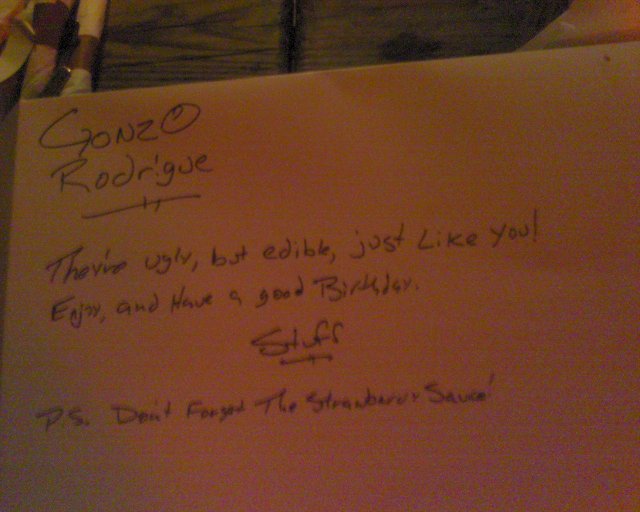 GONZO
Rodrigue
They're ugly, but edible, just Like You!
Enjoy, and Have a good Birthday.
Stuff
P.S. Don't Forget The Strawberry Sauce!